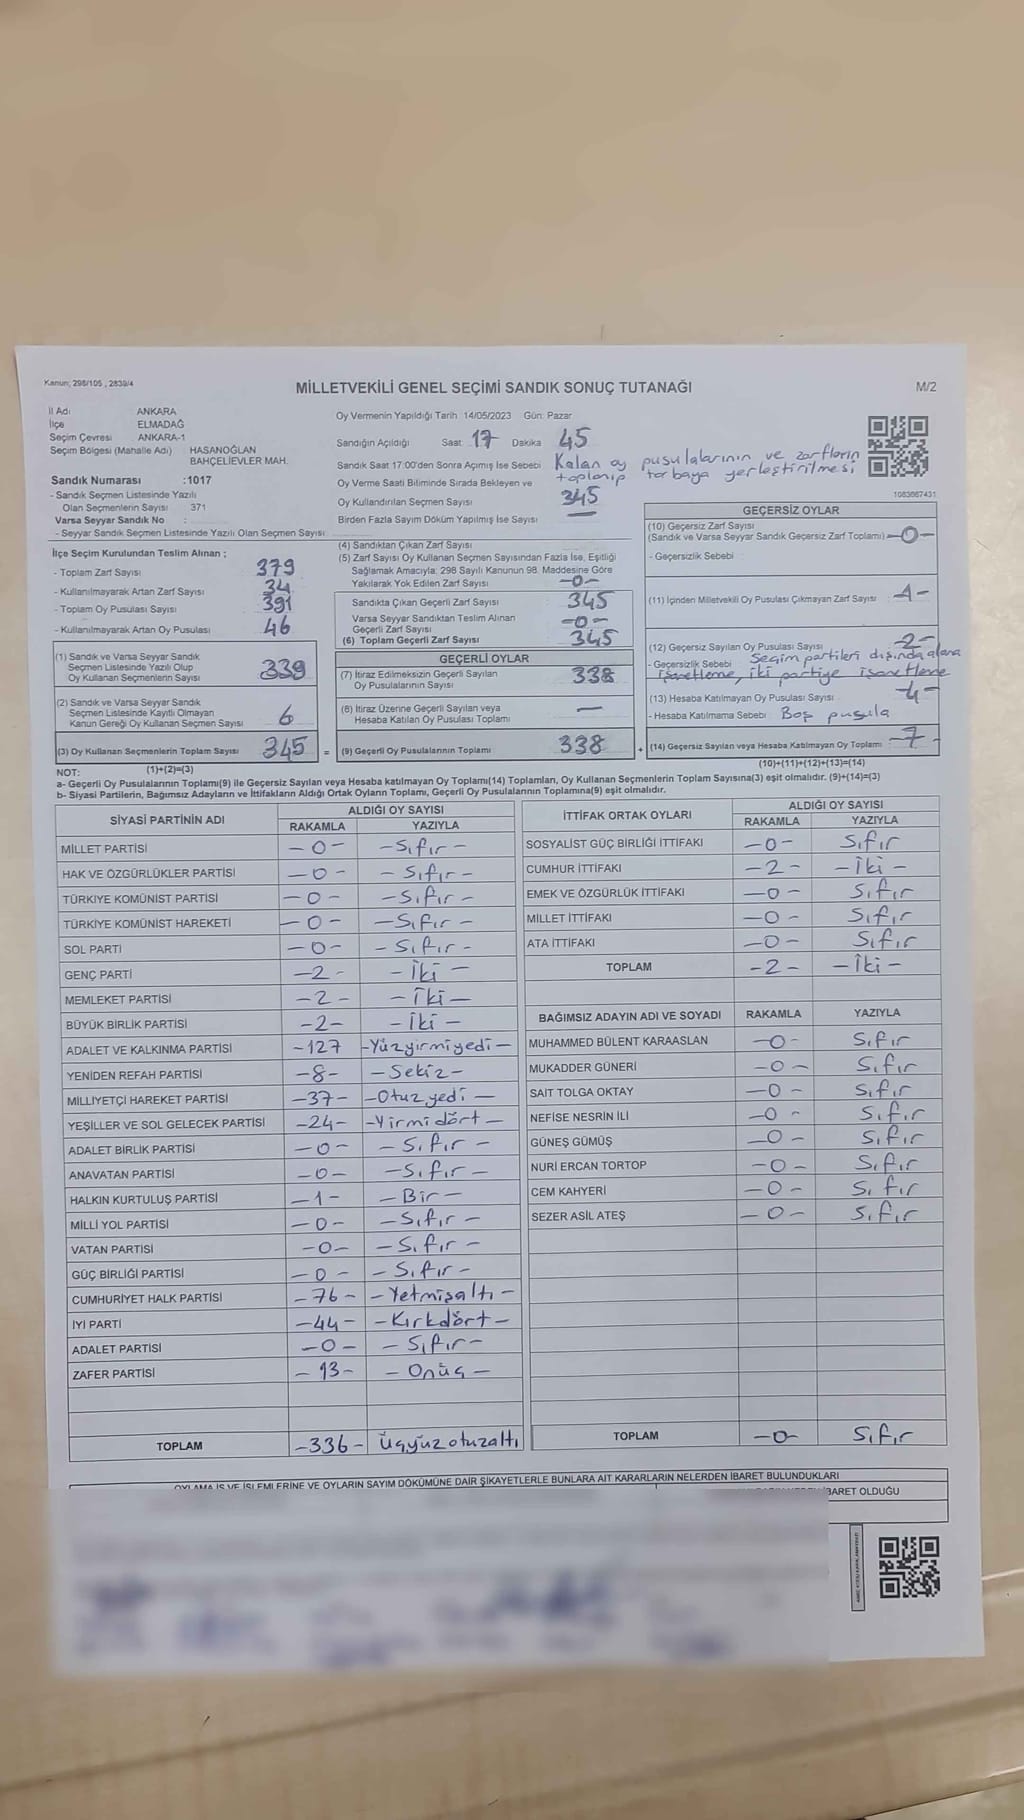 Kanun; 298/105 , 2839/4
MİLLETVEKİLİ GENEL SEÇİMİ SANDIK SONUÇ TUTANAĞI
M/2
İl Adı ANKARA
İlçe ELMADAĞ
Seçim Çevresi ANKARA-1
Seçim Bölgesi (Mahalle Adı) HASANOĞLAN
BAHÇELİEVLER MAH.
Sandık Numarası :1017
- Sandık Seçmen Listesinde Yazılı
Olan Seçmenlerin Sayısı 371
Varsa Seyyar Sandık No :
- Seyyar Sandık Seçmen Listesinde Yazılı Olan Seçmen Sayısı
Oy Vermenin Yapıldığı Tarih 14/05/2023 Gün: Pazar
Sandığın Açıldığı Saat 17 Dakika 45
Sandık Saat 17:00'den Sonra Açımış İse Sebebi Kalan oy pusulalarının ve zarfların
toplanıp torbaya yerleştirilmesi
Oy Verme Saati Bitiminde Sırada Bekleyen ve
Oy Kullandırılan Seçmen Sayısı 345
Birden Fazla Sayım Döküm Yapılmış İse Sayısı —
1083667431
İlçe Seçim Kurulundan Teslim Alınan ;
- Toplam Zarf Sayısı 379
- Kullanılmayarak Artan Zarf Sayısı 34
- Toplam Oy Pusulası Sayısı 391
- Kullanılmayarak Artan Oy Pusulası 46
(1) Sandık ve Varsa Seyyar Sandık
Seçmen Listesinde Yazılı Olup
Oy Kullanan Seçmenlerin Sayısı 339
(2) Sandık ve Varsa Seyyar Sandık
Seçmen Listesinde Kayıtlı Olmayan
Kanun Gereği Oy Kullanan Seçmen Sayısı 6
(3) Oy Kullanan Seçmenlerin Toplam Sayısı 345 =
(1)+(2)=(3)
(4) Sandıktan Çıkan Zarf Sayısı
(5) Zarf Sayısı Oy Kullanan Seçmen Sayısından Fazla İse, Eşitliği
Sağlamak Amacıyla: 298 Sayılı Kanunun 98. Maddesine Göre
Yakılarak Yok Edilen Zarf Sayısı -0-
Sandıkta Çıkan Geçerli Zarf Sayısı 345
Varsa Seyyar Sandıktan Teslim Alınan
Geçerli Zarf Sayısı -0-
(6) Toplam Geçerli Zarf Sayısı 345
GEÇERLİ OYLAR
(7) İtiraz Edilmeksizin Geçerli Sayılan
Oy Pusulalarının Sayısı 338
(8) İtiraz Üzerine Geçerli Sayılan veya
Hesaba Katılan Oy Pusulası Toplamı —
(9) Geçerli Oy Pusulalarının Toplamı 338 +
GEÇERSİZ OYLAR
(10) Geçersiz Zarf Sayısı
(Sandık ve Varsa Seyyar Sandık Geçersiz Zarf Toplamı) -0-
- Geçersizlik Sebebi
(11) İçinden Milletvekili Oy Pusulası Çıkmayan Zarf Sayısı -1-
(12) Geçersiz Sayılan Oy Pusulası Sayısı -2-
- Geçersizlik Sebebi Seçim partileri dışında alana
işaretleme, iki partiye işaretleme
(13) Hesaba Katılmayan Oy Pusulası Sayısı -4-
- Hesaba Katılmama Sebebi Boş pusula
(14) Geçersiz Sayılan veya Hesaba Katılmayan Oy Toplamı -7-
(10)+(11)+(12)+(13)=(14)
NOT:
a- Geçerli Oy Pusulalarının Toplamı(9) ile Geçersiz Sayılan veya Hesaba katılmayan Oy Toplamı(14) Toplamları, Oy Kullanan Seçmenlerin Toplam Sayısına(3) eşit olmalıdır. (9)+(14)=(3)
b- Siyasi Partilerin, Bağımsız Adayların ve İttifakların Aldığı Ortak Oyların Toplamı, Geçerli Oy Pusulalarının Toplamına(9) eşit olmalıdır.
SİYASİ PARTİNİN ADI ALDIĞI OY SAYISI
RAKAMLA YAZIYLA
MİLLET PARTİSİ -0- -Sıfır-
HAK VE ÖZGÜRLÜKLER PARTİSİ -0- -Sıfır-
TÜRKİYE KOMÜNİST PARTİSİ -0- -Sıfır-
TÜRKİYE KOMÜNİST HAREKETİ -0- -Sıfır-
SOL PARTİ -0- -Sıfır-
GENÇ PARTİ -2- -İki-
MEMLEKET PARTİSİ -2- -İki-
BÜYÜK BİRLİK PARTİSİ -2- -İki-
ADALET VE KALKINMA PARTİSİ -127 -Yüzyirmiyedi-
YENİDEN REFAH PARTİSİ -8- -Sekiz-
MİLLİYETÇİ HAREKET PARTİSİ -37- -Otuzyedi-
YEŞİLLER VE SOL GELECEK PARTİSİ -24- -Yirmidört-
ADALET BİRLİK PARTİSİ -0- -Sıfır-
ANAVATAN PARTİSİ -0- -Sıfır-
HALKIN KURTULUŞ PARTİSİ -1- -Bir-
MİLLİ YOL PARTİSİ -0- -Sıfır-
VATAN PARTİSİ -0- -Sıfır-
GÜÇ BİRLİĞİ PARTİSİ -0- -Sıfır-
CUMHURİYET HALK PARTİSİ -76- -Yetmişaltı-
İYİ PARTİ -44- -Kırkdört-
ADALET PARTİSİ -0- -Sıfır-
ZAFER PARTİSİ -13- -Onüç-
TOPLAM -336- Üçyüzotuzaltı
İTTİFAK ORTAK OYLARI ALDIĞI OY SAYISI
RAKAMLA YAZIYLA
SOSYALİST GÜÇ BİRLİĞİ İTTİFAKI -0- Sıfır
CUMHUR İTTİFAKI -2- -İki-
EMEK VE ÖZGÜRLÜK İTTİFAKI -0- Sıfır
MİLLET İTTİFAKI -0- Sıfır
ATA İTTİFAKI -0- Sıfır
TOPLAM -2- -İki-
BAĞIMSIZ ADAYIN ADI VE SOYADI RAKAMLA YAZIYLA
MUHAMMED BÜLENT KARAASLAN -0- Sıfır
MUKADDER GÜNERİ -0- Sıfır
SAİT TOLGA OKTAY -0- Sıfır
NEFİSE NESRİN İLİ -0- Sıfır
GÜNEŞ GÜMÜŞ -0- Sıfır
NURİ ERCAN TORTOP -0- Sıfır
CEM KAHYERİ -0- Sıfır
SEZER ASİL ATEŞ -0- Sıfır
TOPLAM -0- Sıfır
OYLAMA İŞ VE İŞLEMLERİNE VE OYLARIN SAYIM DÖKÜMÜNE DAİR ŞİKAYETLERLE BUNLARA AİT KARARLARIN NELERDEN İBARET BULUNDUKLARI
İBARET OLDUĞU